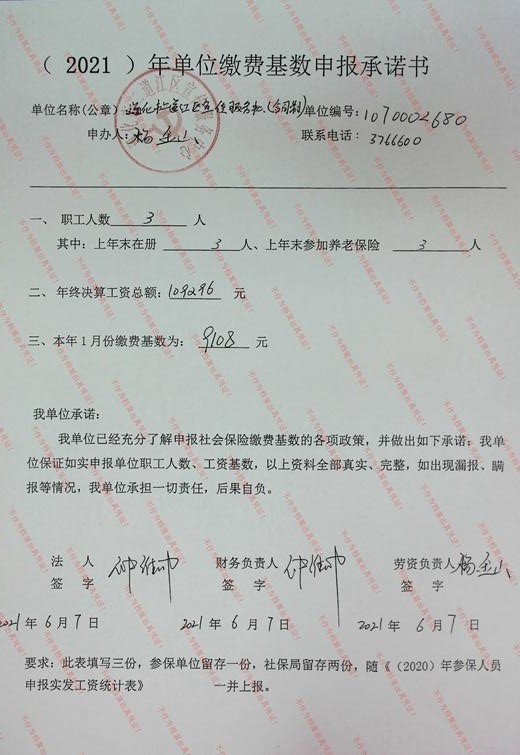 （ 2021 ）年单位缴费基数申报承诺书
单位名称(公章) 通化 江区 (合同制) 单位编号：1070002680
申办人：杨 联系电话：3766600
一、 职工人数 3 人
其中：上年末在册 3 人、上年末参加养老保险 3 人
二、年终决算工资总额：109296 元
三、本年1月份缴费基数为： 9108 元
我单位承诺：
我单位已经充分了解申报社会保险缴费基数的各项政策，并做出如下承诺：我单
位保证如实申报单位职工人数、工资基数，以上资料全部真实、完整，如出现漏报、瞒
报等情况，我单位承担一切责任，后果自负。
法 人 财务负责人 劳资负责人 杨
签 字 签 字 签 字
2021年 6月7日 2021年 6月7日 2021年 6月7日
要求：此表填写三份，参保单位留存一份，社保局留存两份，随《（2020）年参保人员
申报实发工资统计表》 一并上报。